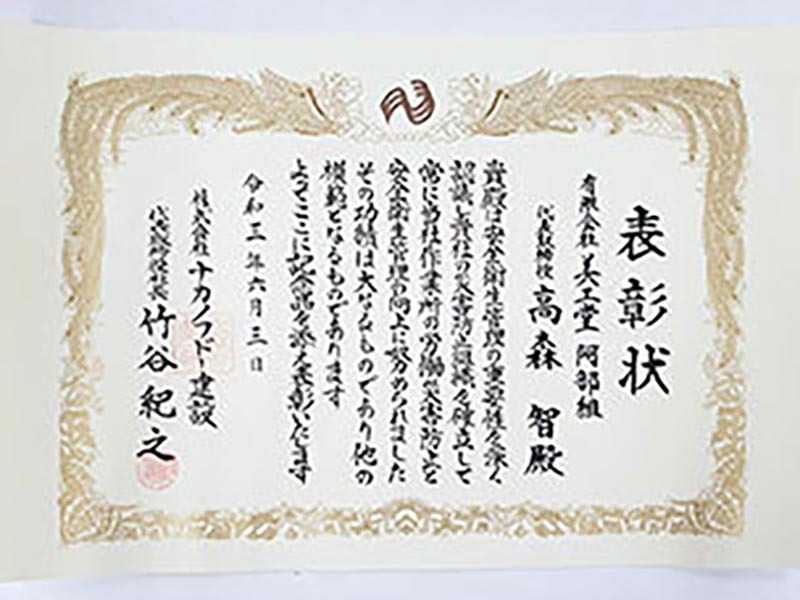 表彰状
有限会社 美工堂 阿部組
代表取締役 高森 智殿
貴殿は安全衛生管理の重要性を深く
認識し貴社の災害防止組織を確立して
常に当社作業所の労働災害防止と
安全衛生管理の向上に努められました
その功績は大なるものであり他の
模範となるものであります
よってここに記念品を添え表彰いたします
令和三年六月三日
株式会社 ナカノフドー建設
代表取締役社長 竹谷紀之